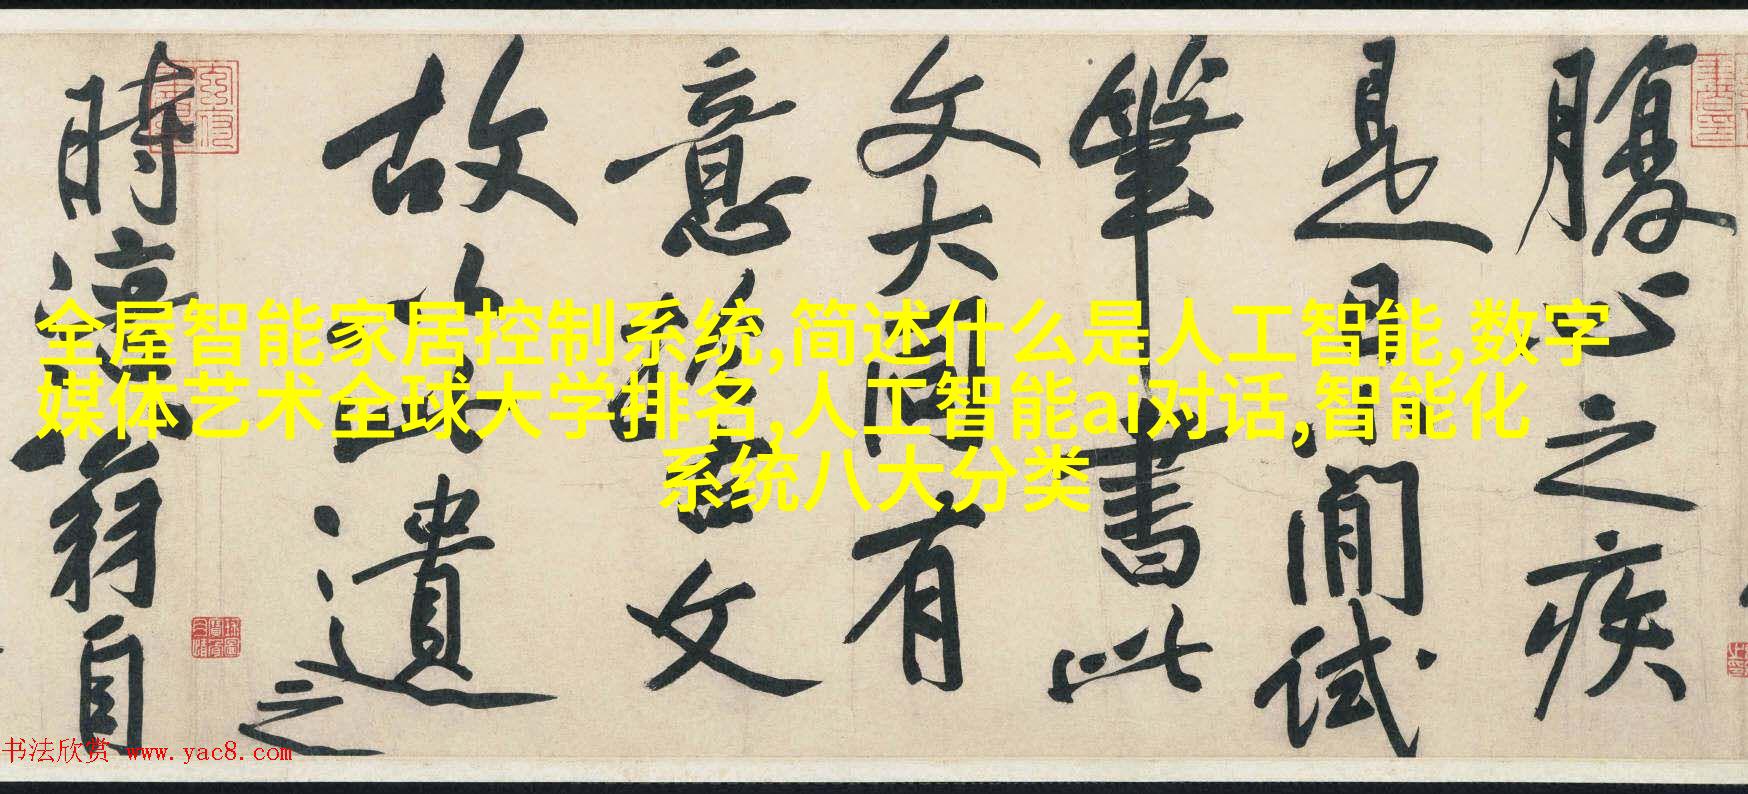 腹心之疾
是日閒試
筆書此
文大同有
意於文
故以遺之
時涪翁自
全屋智能家居控制系统,简述什么是人工智能,数字
媒体艺术全球大学排名,人工智能ai对话,智能化
系统八大分类
书法欣赏 www.yac8.com